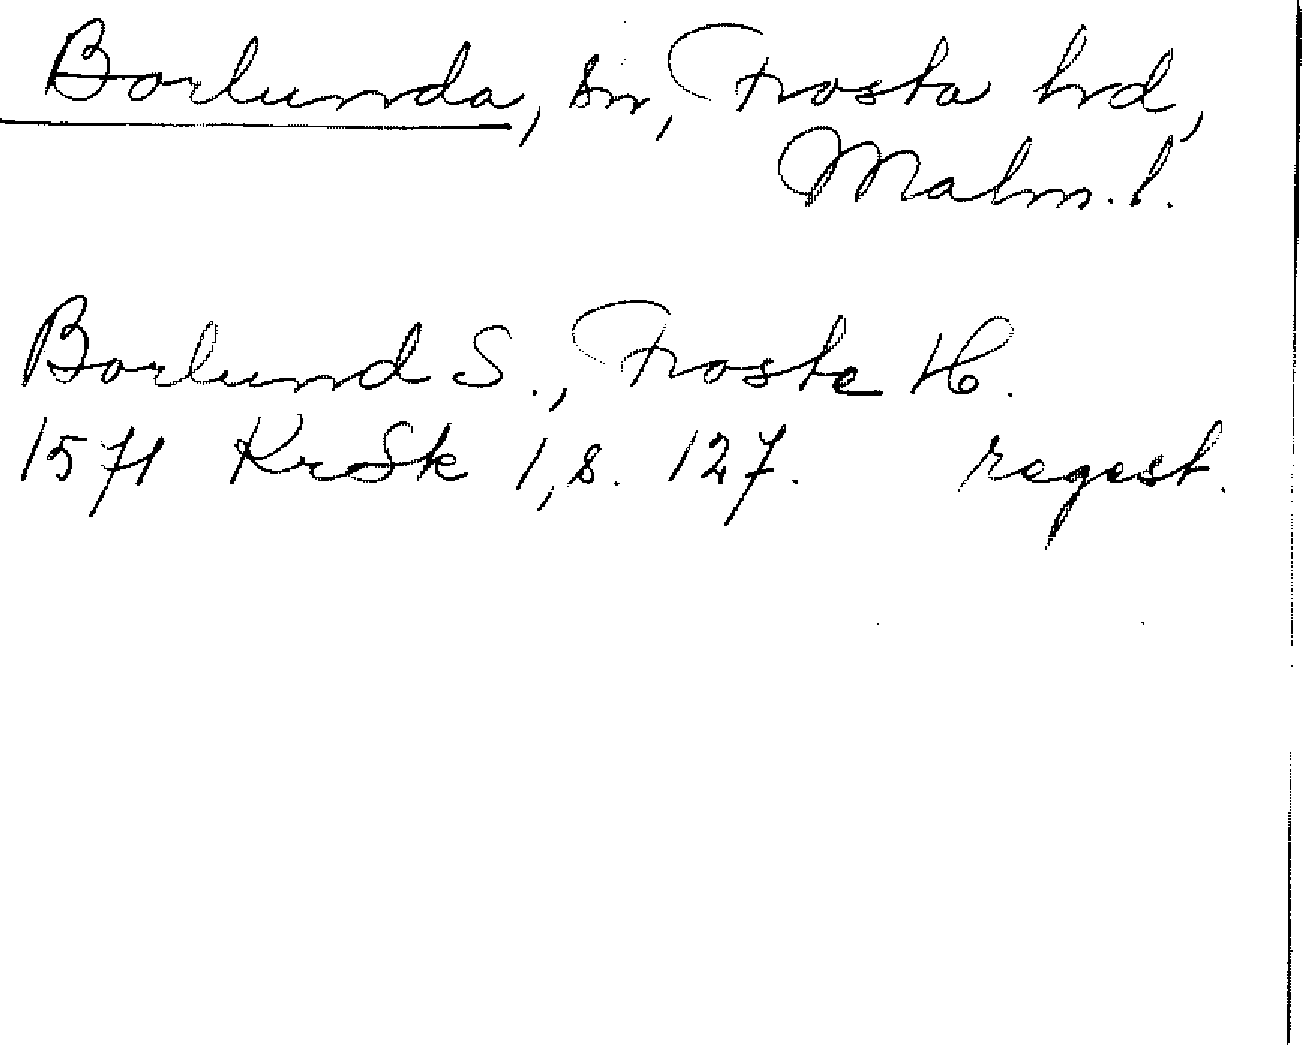 Borlunda, sn, Frosta hrd,
Malm. l.
Borlund S., Froste H.
1571 KrSk 1, s. 127. regest.